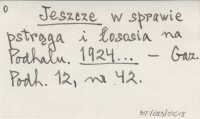 Jeszcze w sprawie
pstrąga i łososia na
Podhalu. 1924... – Gaz.
Podh. 12, nr 42.